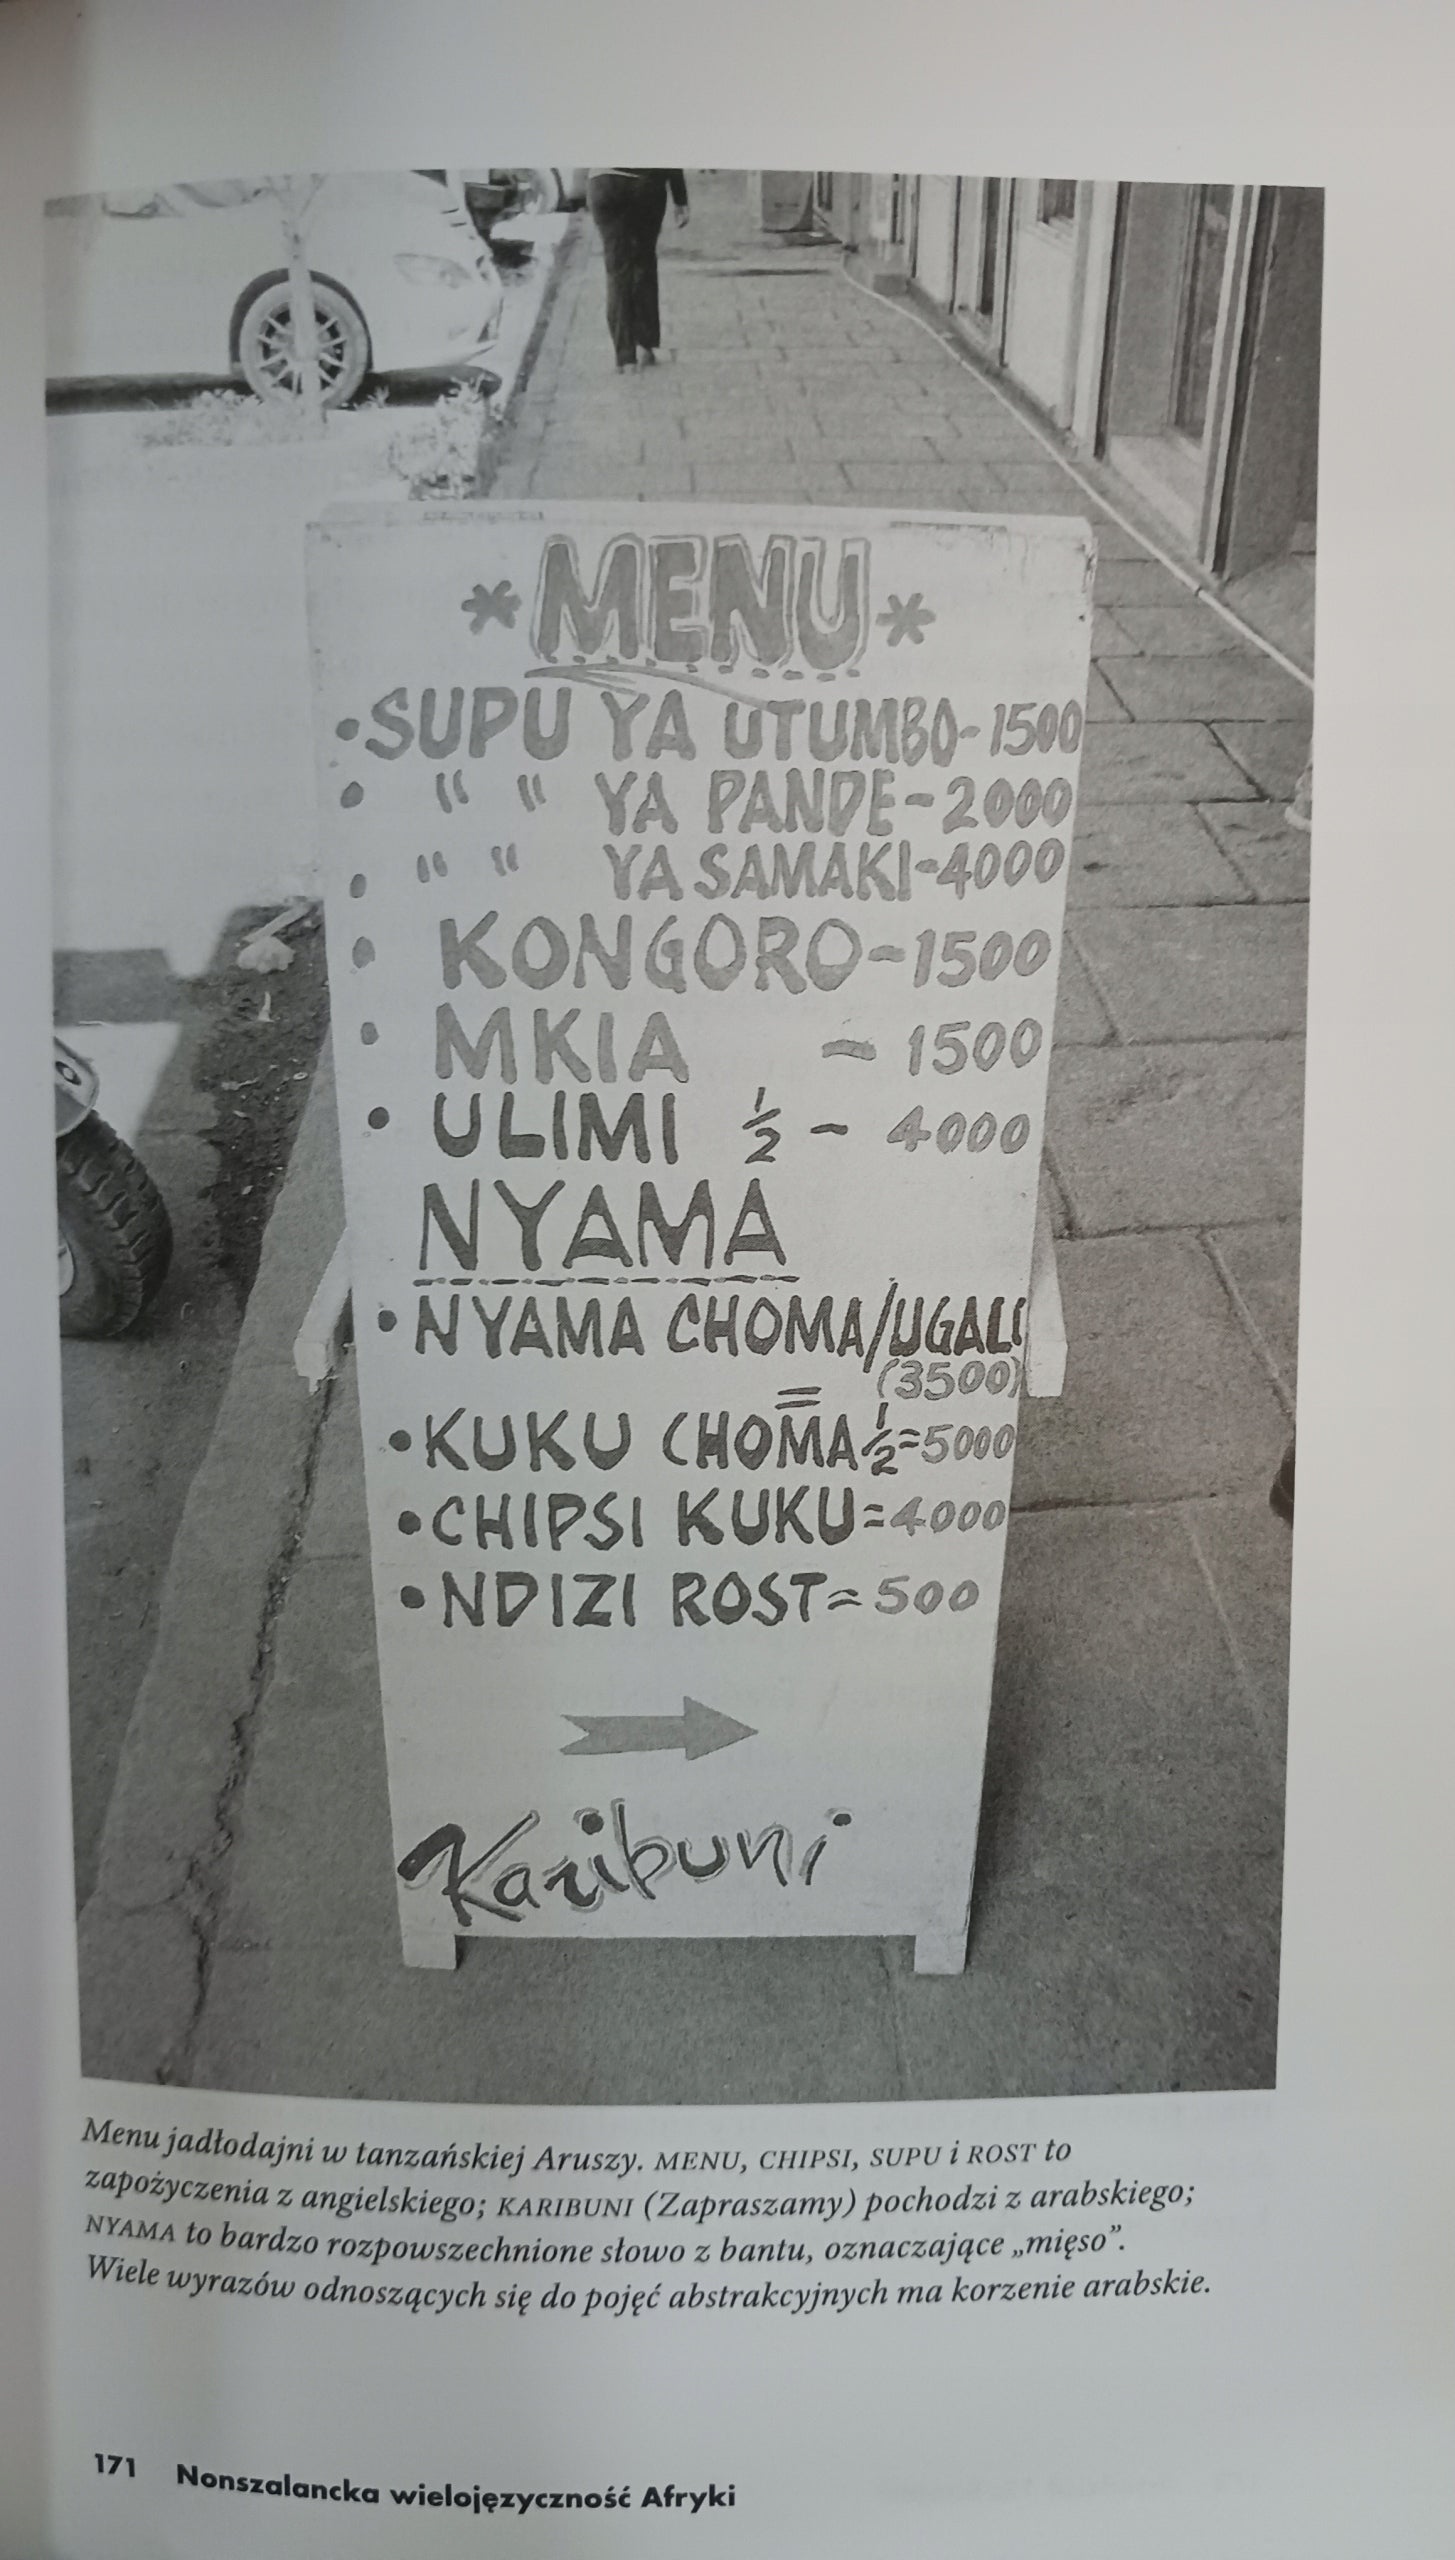 *MENU*
•SUPU YA UTUMBO-1500
• " " YA PANDE-2000
• " " YA SAMAKI-4000
• KONGORO-1500
• MKIA - 1500
• ULIMI 1/2 - 4000
NYAMA
•NYAMA CHOMA/UGALI
(3500)
=
•KUKU CHOMA 1/2=5000
•CHIPSI KUKU=4000
•NDIZI ROST=500
Karibuni
Menu jadłodajni w tanzańskiej Aruszy. MENU, CHIPSI, SUPU i ROST to
zapożyczenia z angielskiego; KARIBUNI (Zapraszamy) pochodzi z arabskiego;
NYAMA to bardzo rozpowszechnione słowo z bantu, oznaczające „mięso”.
Wiele wyrazów odnoszących się do pojęć abstrakcyjnych ma korzenie arabskie.
171 Nonszalancka wielojęzyczność Afryki